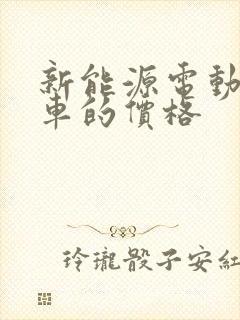 新能源電動
車的價格
玲瓏骰子安紅